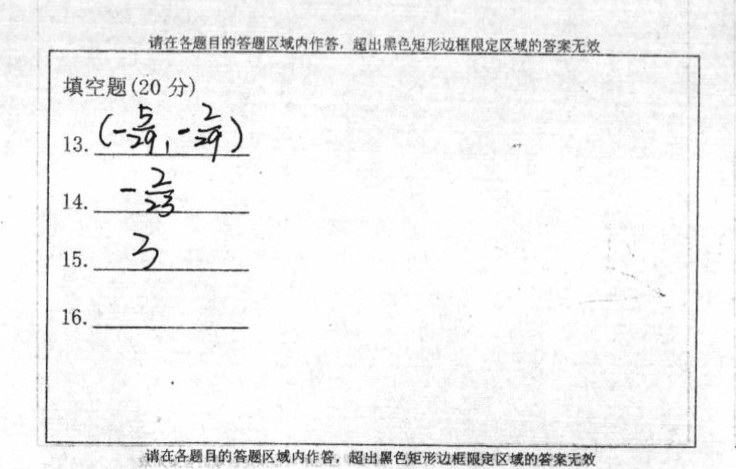 请在各题目的答题区域内作答，超出黑色矩形边框限定区域的答案无效
填空题(20 分)
13. (-5/29, -2/29)
14. -2/23
15. 3
16.
请在各题目的答题区域内作答，超出黑色矩形边框限定区域的答案无效